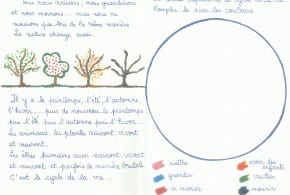 nous naissons, nous grandissons
et nous mourrons... mais nous ne
mourrons pas tous de la même manière.
La nature change aussi.
Il y a le printemps, l'été, l'automne,
l'hiver..... puis de nouveau le printemps
puis l'été puis l'automne puis l'hiver...
Les animaux, les plantes naissent, vivent
et meurent.
Les êtres humains aussi naissent, vivent
et meurent et parfois de manière brutale.
C'est le cycle de la vie...
cycle de la vie
Remplis-le avec les couleurs
naître
grandir
se marier
avoir des
enfants
vieillir
mourir